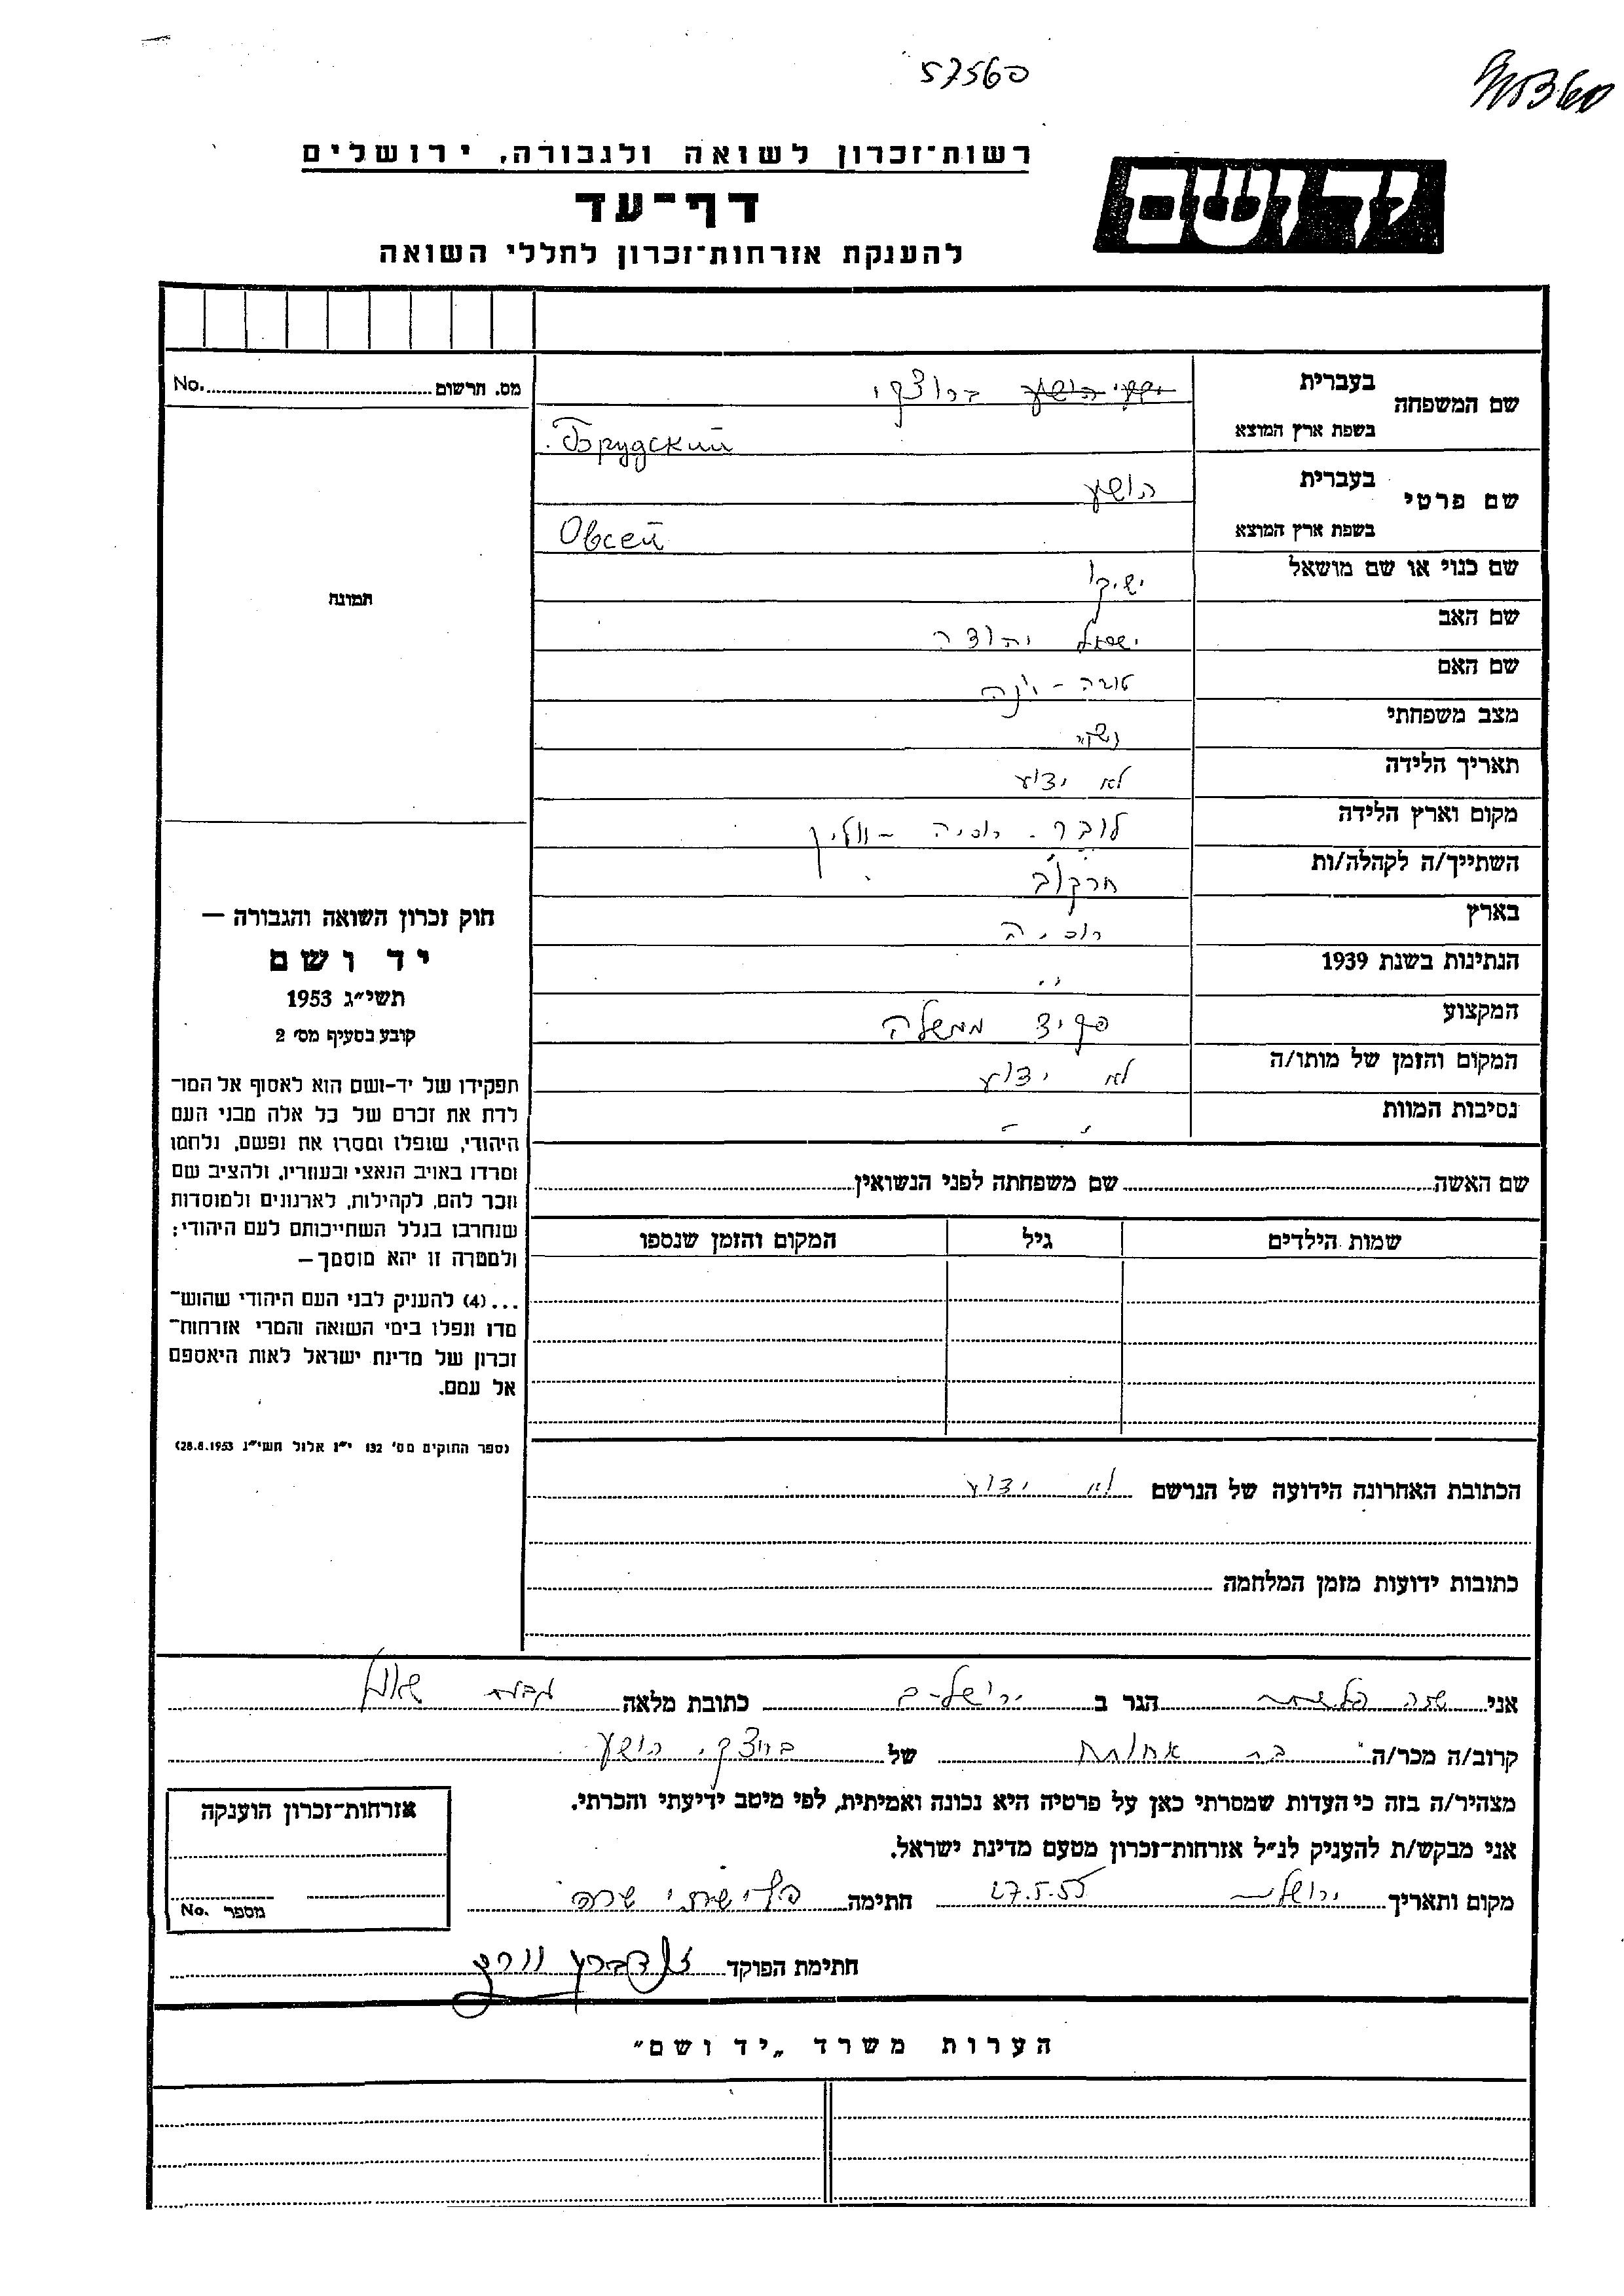 57560
רשות־זכרון לשואה ולגבורה, ירושלים
יד ושם
דף־עד
להענקת אזרחות־זכרון לחללי השואה
מס. תרשום No.
שם המשפחה
בעברית ברודצקי
בשפת ארץ המוצא Брудский
שם פרטי
בעברית הושע
בשפת ארץ המוצא Овсей
שם כנוי או שם מושאל
שם האב ישראל יהודה
שם האם טובה -
מצב משפחתי נשוי
תאריך הלידה לא ידוע
מקום וארץ הלידה לובר. רוסיה - ווהלין
השתייך/ה לקהלה/ות חרקוב
בארץ רוסיה
הנתינות בשנת 1939 "
המקצוע פקיד ממשלה
המקום והזמן של מותו/ה לא ידוע
נסיבות המוות " -
תמונה
חוק זכרון השואה והגבורה —
יד ושם
תשי״ג 1953
קובע בסעיף מס׳ 2
תפקידו של יד-ושם הוא לאסוף אל המו־
לדת את זכרם של כל אלה מבני העם
היהודי, שנפלו ומסרו את נפשם, נלחמו
ומרדו באויב הנאצי ובעוזריו, ולהציב שם
וזכר להם, לקהילות, לארגונים ולמוסדות
שנחרבו בגלל השתייכותם לעם היהודי;
ולמטרה זו יהא מוסמך—
...(4) להעניק לבני העם היהודי שהוש־
מדו ונפלו בימי השואה והמרי אזרחות־
זכרון של מדינת ישראל לאות היאספם
אל עמם.
(ספר החוקים מס׳ 132 י״ז אלול תשי״ג 28.8.1953)
שם האשה שם משפחתה לפני הנשואין
שמות הילדים גיל המקום והזמן שנספו
הכתובת האחרונה הידועה של הנרשם לא ידוע
כתובות ידועות מזמן המלחמה
אני שרה פלישתי הגר ב ירושלים כתובת מלאה גבעת שאול
קרוב/ה מכר/ה בת אחות של ברודצקי הושע
מצהיר/ה בזה כי העדות שמסרתי כאן על פרטיה היא נכונה ואמיתית, לפי מיטב ידיעתי והכרתי.
אני מבקש/ת להעניק לנ״ל אזרחות־זכרון מטעם מדינת ישראל.
מקום ותאריך ירושלים 27.5.55 חתימה פלישתי שרה
חתימת הפוקד
אזרחות־זכרון הוענקה
מספר No.
הערות משרד „יד ושם״